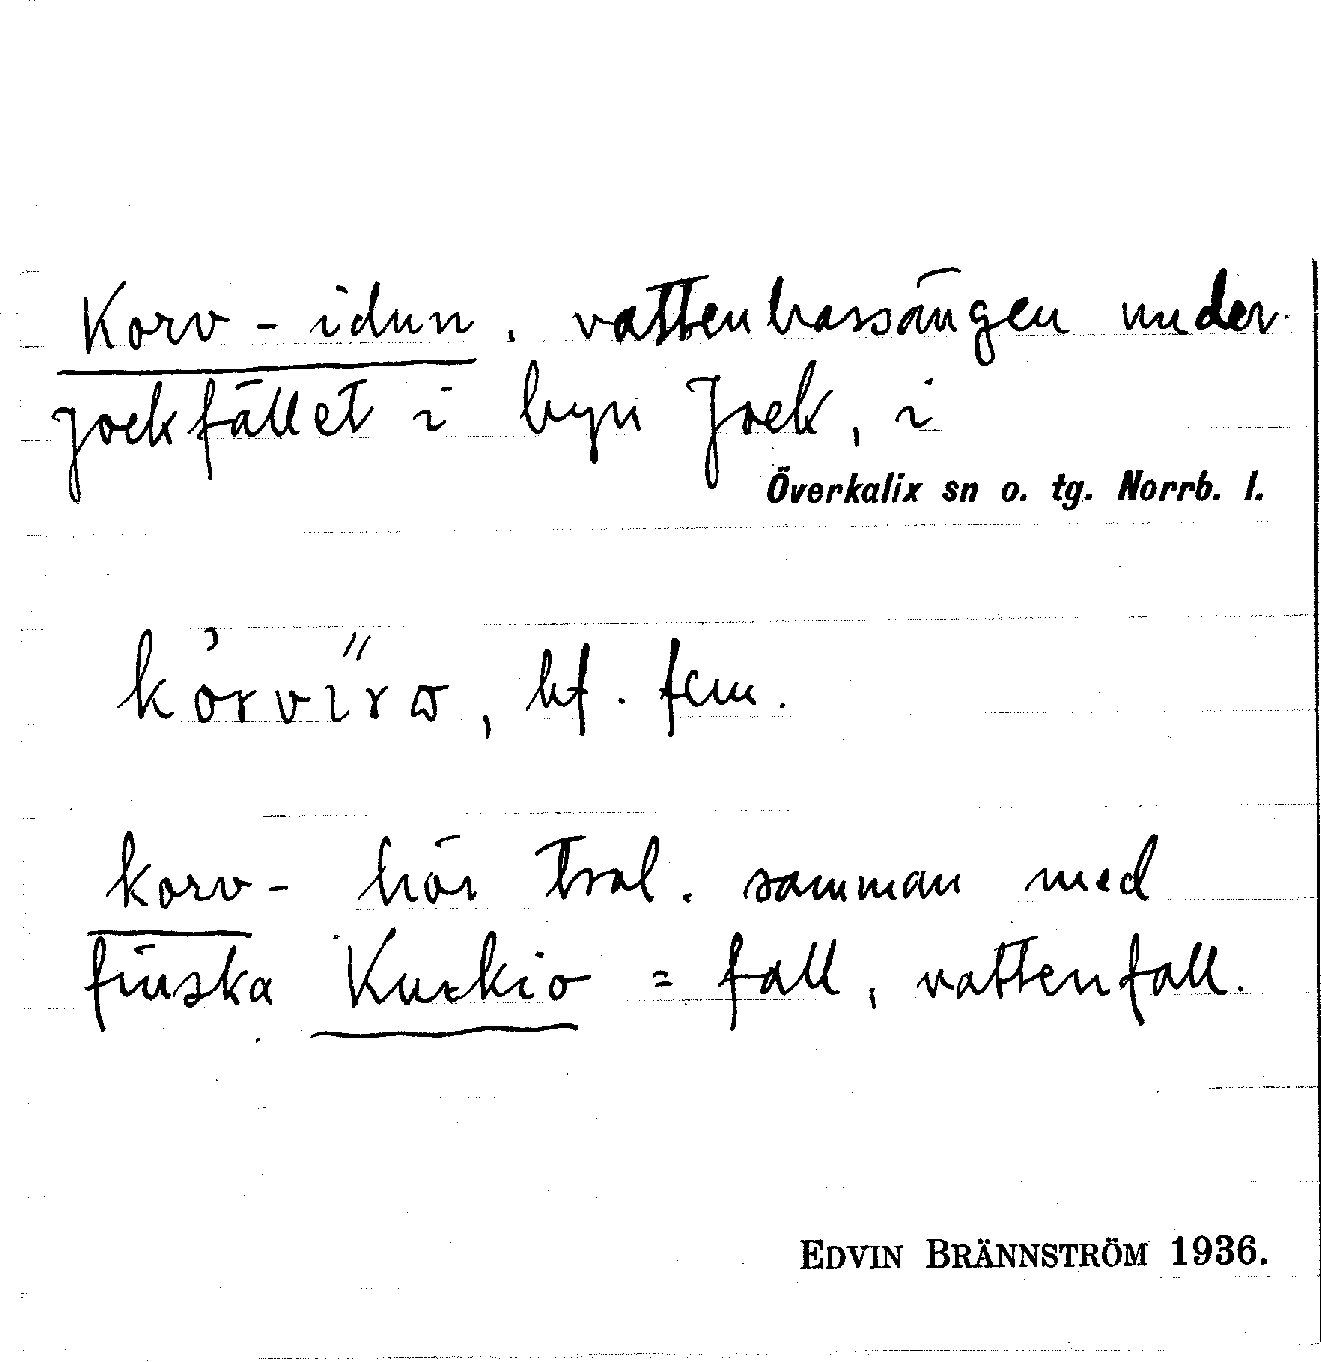 Korv-idun, vattenbassängen under
Jockfallet i byn Jock, i
Överkalix sn o. tg. Norrb. l.
bf. fem.
korv- hör trol. samman med
finska Kurkio = fall, vattenfall.
EDVIN BRÄNNSTRÖM 1936.